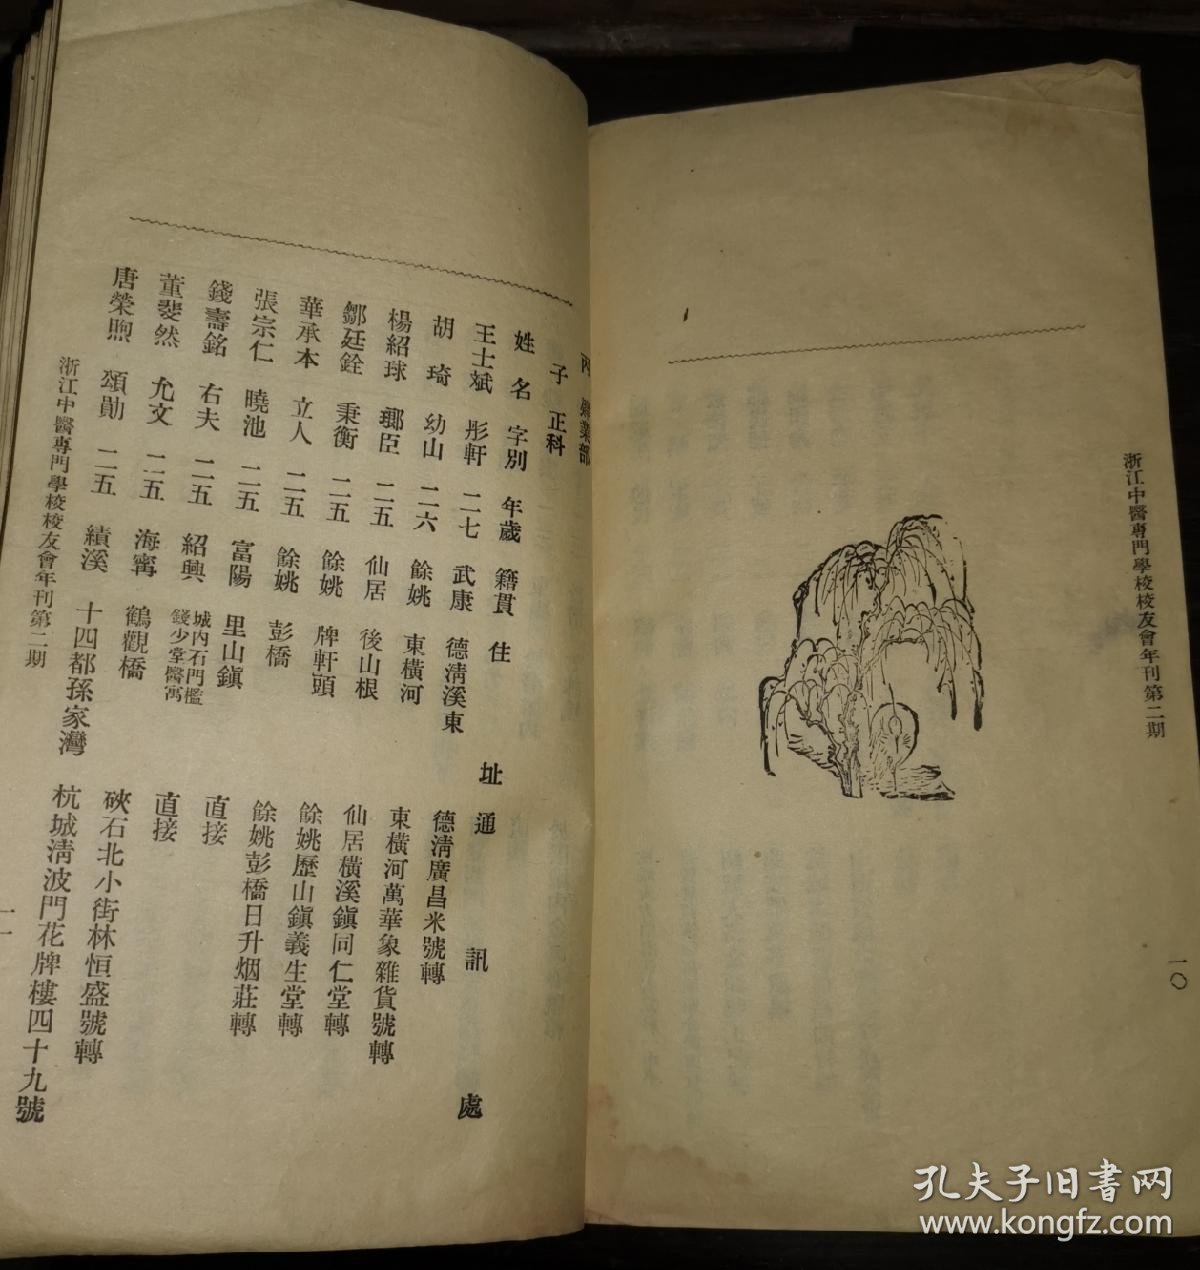 浙江中醫專門學校校友會年刊第二期
一〇
丙 肄業部
子 正科
姓名 字別 年歲 籍貫 住址 通訊處
王士斌 彤軒 二七 武康 德清溪東 德清廣昌米號轉
胡琦 幼山 二六 餘姚 東橫河 東橫河萬華象雜貨號轉
楊紹球 瑯臣 二五 仙居 後山根 仙居橫溪鎮同仁堂轉
鄒廷銓 秉衡 二五 餘姚 牌軒頭 餘姚歷山鎮義生堂轉
華承本 立人 二五 餘姚 彭橋 餘姚彭橋日升烟莊轉
張宗仁 曉池 二五 富陽 里山鎮 直接
錢壽銘 右夫 二五 紹興 城內石門檻錢少堂醫寓 直接
董斐然 允文 二五 海寗 鶴觀橋 硤石北小街林恒盛號轉
唐榮煦 頌勛 二五 績溪 十四都孫家灣 杭城清波門花牌樓四十九號
浙江中醫專門學校校友會年刊第二期
一一
孔夫子旧书网
www.kongfz.com